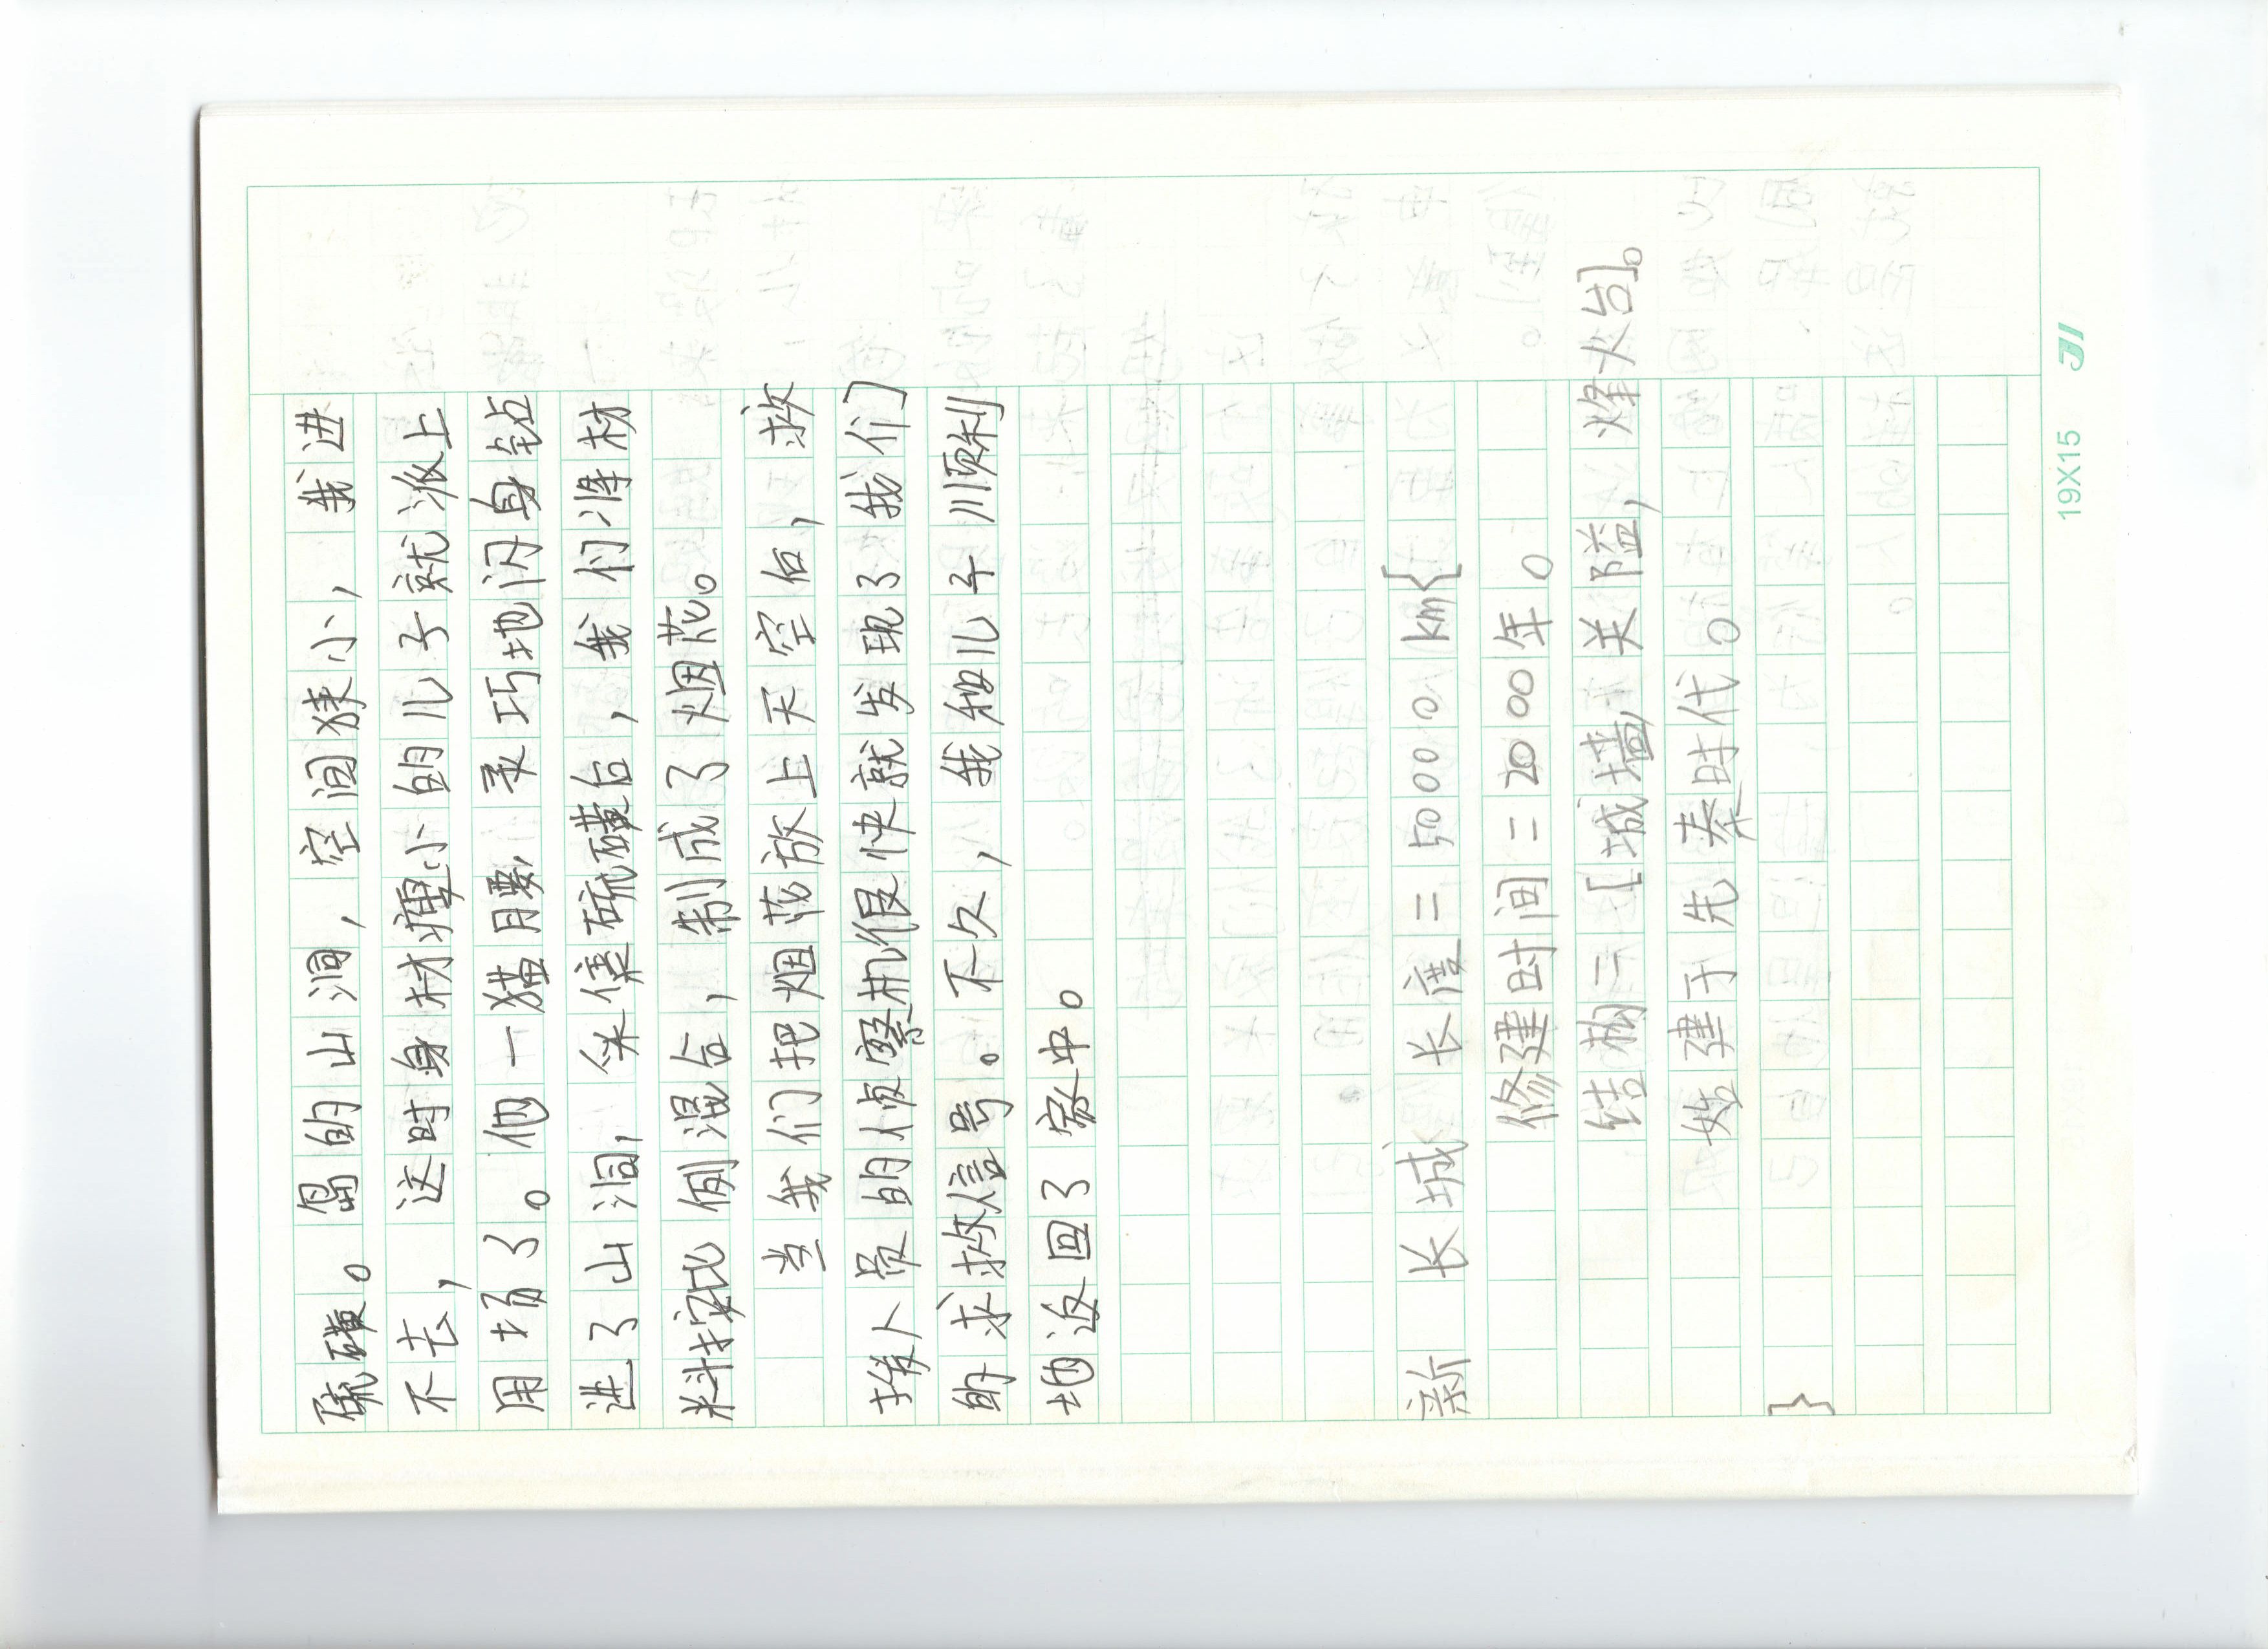 硫磺。岛的山洞，空间狭小，我进
不去，这时身材瘦小的儿子就派上
用场了。他一猫腰，灵巧地闪身钻
进了山洞，采集硫磺后，我们将材
料按比例混合，制成了烟花。
当我们把烟花放上天空后，救
援人员的侦察机很快就发现了我们
的求救信号。不久，我和儿子顺利
地返回了家中。
新长城 长度=50000km{
修建时间=2000年。
结构=[城墙,关隘,烽火台]。
始建于先秦时代。
}
19X15